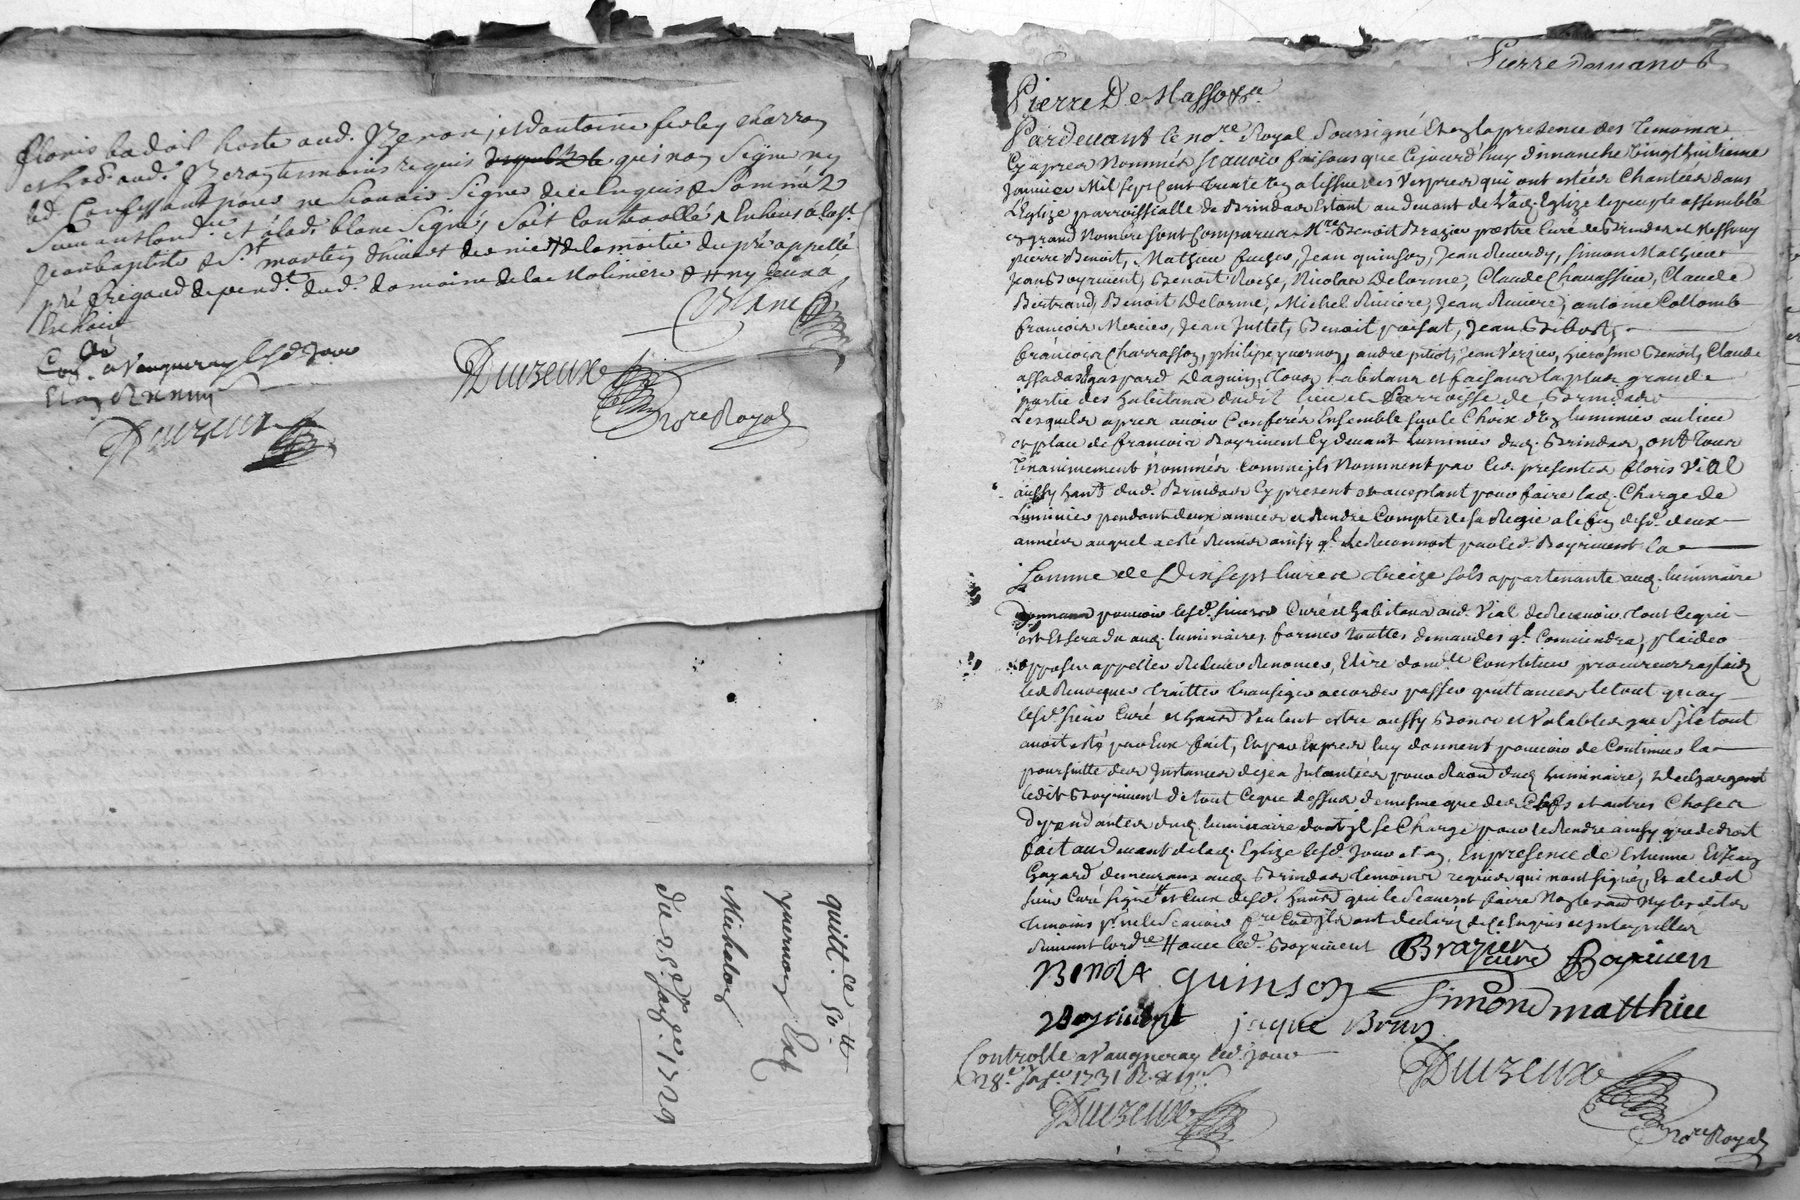 floris badoil hoste aud. Yzeron, et d'antoine ferley charron
et hab. aud. Yzeron temoins requis qui non signé ny
led. Confessant pour ne scavoir signer de ce enquis & sommés
suivant l'ord. et a lad. blanc signé, soit controollé
Jean baptiste & St. martin d'hiver dernier de la moitié du pré appellé
pré frigaud depend.t dud. domaine de la Moliniere
Blanc
Con.lé a Vaugneray lesd. Jour
Et an
Duizeux
Duizeux
No.re Royal
quitt.ce 50 tt
yvernon Ext
Michalon
du 28e Janv.er 1729
Pierre
Pierre De Masso
Pardevant le no.re Royal soussigné Et en la presence des temoins
Cy apres Nommés scavoir faisons que Cejourd'huy dimanche vingt huitieme
Janvier Mil sept cent trente un a lissue des Vespres qui ont estées Chantées dans
L'Eglize parroissialle de Brindas Estant au devant de lad. Eglize le peuple assemblé
en grand Nombre sont Comparus M.re Benoit Brazier prestre Curé de Brindas et Messimy
pierre Benoit, Mathieu, Jean quinson, Jean Reverdy, Simon Mathieu
Jean Boyriment, Benoit Roche, Nicolas Delorme, Claude Chavassieu, Claude
Bertrand, Benoit Delorme, Michel Riviere, Jean Riviere, antoine Collomb
francois Mercier, Jean Juttet, Benoit poisat, Jean Bibost,
francois Charrasson, philipe yvernon, andre pitiot, Jean Verzieu, hierosme Benoit, Claude
gaspard Daguin, tous habitans et faisants la plus grande
partie des habitans dudit lieu et Parroisse de Brindas
Lesquels apres avoir Conferés Ensemble sur le Choix d'un luminier au lieu
et place de francois Boyriment Cy devant luminier dud. Brindas, ont tous
Unanimement Nommés comme ils Nomment par les presentes floris Vial
aussy hant dud. Brindas Cy present et acceptant pour faire lad. Charge de
Luminier pendant deux années et Rendre Compte de sa Regie a la fin desd. deux
années auquel a esté Remis ainsy q.l le Reconnoit par led. Boyriment la
somme de Dix sept livres treize sols appartenante aud. luminaire
donnans pouvoir lesd. sieurs Curé et habitans aud. Vial de Recevoir tout ce qui
est Et sera du aud. luminaire, former touttes demandes q.l Conviendra, plaider
opposer appeller Relever Renoncer, Elire dom.lle Constituer procureurs
les Revoquer traitter transiger accorder passer quittances le tout quoy
lesd. sieur Curé et hants Veulent estre aussy Bonne et Valables que si le tout
avoit esté par Eux fait, Et par Expres luy donnent pouvoir de Continuer la
poursuitte des Instances deja Intentées pour Raon dud. luminaire, dechargent
ledit Boyriment de tout Ceque dessus de mesme que des Clefs et autres Choses
dependantes dud. luminaire dont il se Charge pour le Rendre ainsy que de droit
fait au devant de lad. Eglize lesd. Jour et an, En presence de Estienne Et Jean
Gayard demeurans aud. Brindas temoins requis qui n'ont signé, Et a ledit
sieur Curé signé et Ceux desd. hants qui le scavent faire Non les autres Ny lesdits
temoins p.r ne le scavoir ont declaré de Ce Enquis et Interpellés
suivant l'ord.re avec led. Boyriment
Brazier curé
Boyriment
Benoit quinson Simond matthieu
Boyriment jaque Brun
Controllé a Vaugneray led. jour
28e Janv.er 1731
Duizeux
Duizeux
No.re Royal